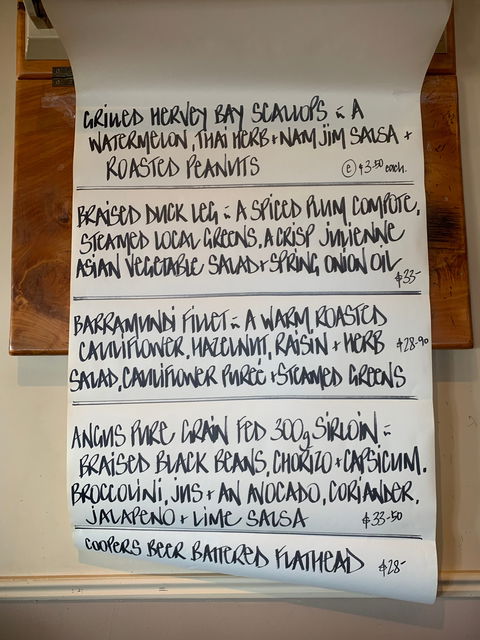 GRILLED HERVEY BAY SCALLOPS ~ A
WATERMELON, THAI HERB + NAM JIM SALSA +
ROASTED PEANUTS
@ $3.50 each.
BRAISED DUCK LEG ~ A SPICED PLUM COMPOTE,
STEAMED LOCAL GREENS, A CRISP JULIENNE
ASIAN VEGETABLE SALAD + SPRING ONION OIL
$33-
BARRAMUNDI FILLET ~ A WARM, ROASTED
CAULIFLOWER, HAZELNUT, RAISIN + HERB $28-90
SALAD, CAULIFLOWER PUREE + STEAMED GREENS
ANGUS PURE GRAIN FED 300g SIRLOIN ~
BRAISED BLACK BEANS, CHORIZO + CAPSICUM.
BROCCOLINI, JUS + AN AVOCADO, CORIANDER,
JALAPENO + LIME SALSA $33-50
COOPERS BEER BATTERED FLATHEAD $28-